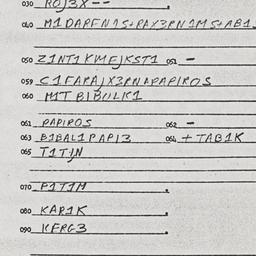 030 ROJ3X--
040 M1DAPFN1S+RAX3RN1MS+AB1
050 Z1NT1KMFJKST1 051 -
059 C1FARAJX3RNAPAPIROS
060 M1TB1BULK1
061 PAPIROS 062 -
063 B1BAL1PAPI3 064 +TAB1K
065 T1T1N
070 P1T1M
080 KAR1K
090 KFRG3